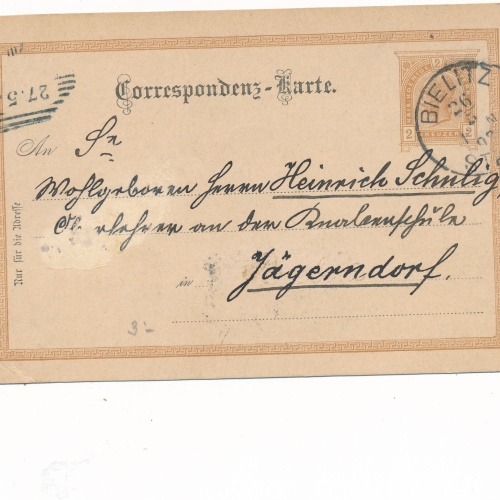 Correspondenz-Karte.
2 2
KREUZER
BIELITZ
26
27.5
An
Sr
Wohlgeboren Herrn Heinrich Schulig,
Oberlehrer an der Knabenschule
in Jägerndorf.
Nur für die Adresse
3.-